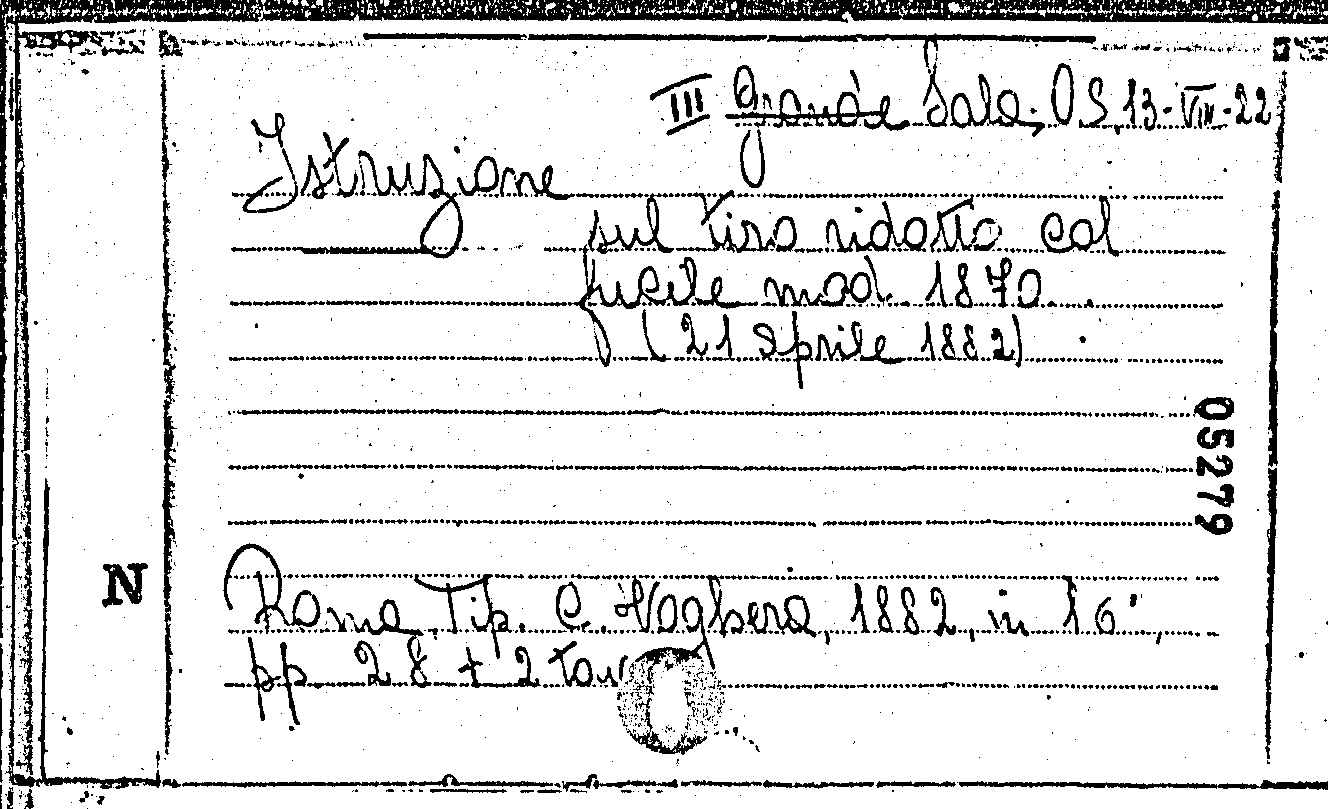 III Grande Sala, OS, 13-VIII-22
Istruzione
sul tiro ridotto col
fucile mod. 1870.
(21 Aprile 1882)
05279
N
Roma, Tip. C. Voghera, 1882, in 16°,
pp. 28 + 2 tav